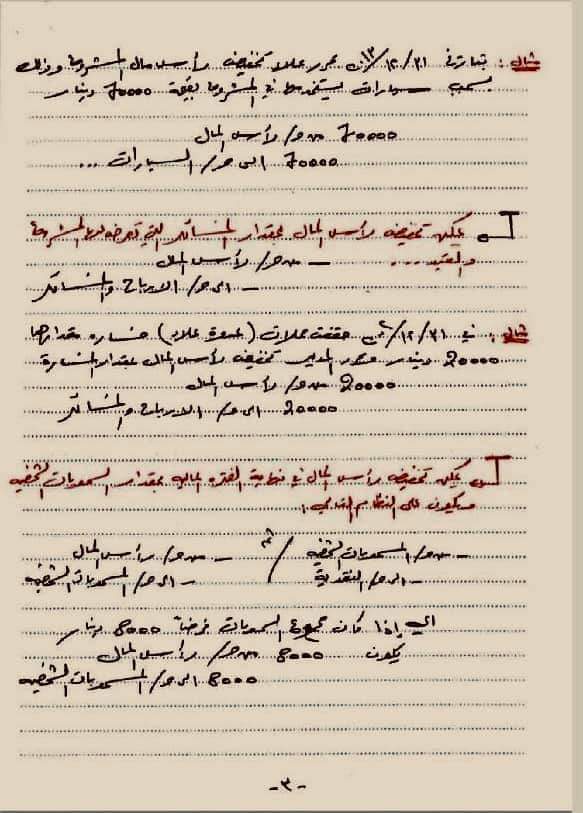 مثال : بتاريخ ١٢/٣١ قرر علاء تخفيض رأس مال المشروع وذلك
بسحب سيارات يستخدمها في المشروع بقيمة 70000 دينار
70000 من حـ/ رأس المال
70000 الى حـ/ السيارات ...
يمكن تخفيض رأس المال بمقدار الخسائر التي تعرض لها المشروع
والقيد ....
– من حـ/ رأس المال
– الى حـ/ الارباح والخسائر
مثال : في ١٢/٣١ حققت محلات ( علاء ) خسارة مقدارها
20000 دينار وقرر تخفيض رأس المال بمقدار الخسارة
20000 من حـ/ رأس المال
20000 الى حـ/ الارباح والخسائر
يمكن تخفيض رأس المال في نهاية الفترة المالية بمقدار المسحوبات الشخصية
ويكون على النظام التالي :
– من حـ/ المسحوبات الشخصية / ثم – من حـ/ رأس المال
– الى حـ/ النقدية – الى حـ/ المسحوبات الشخصية
اي إذا كان مجموع المسحوبات فرضاً 8000 دينار
يكون 8000 من حـ/ رأس المال
8000 الى حـ/ المسحوبات الشخصية
-٣-